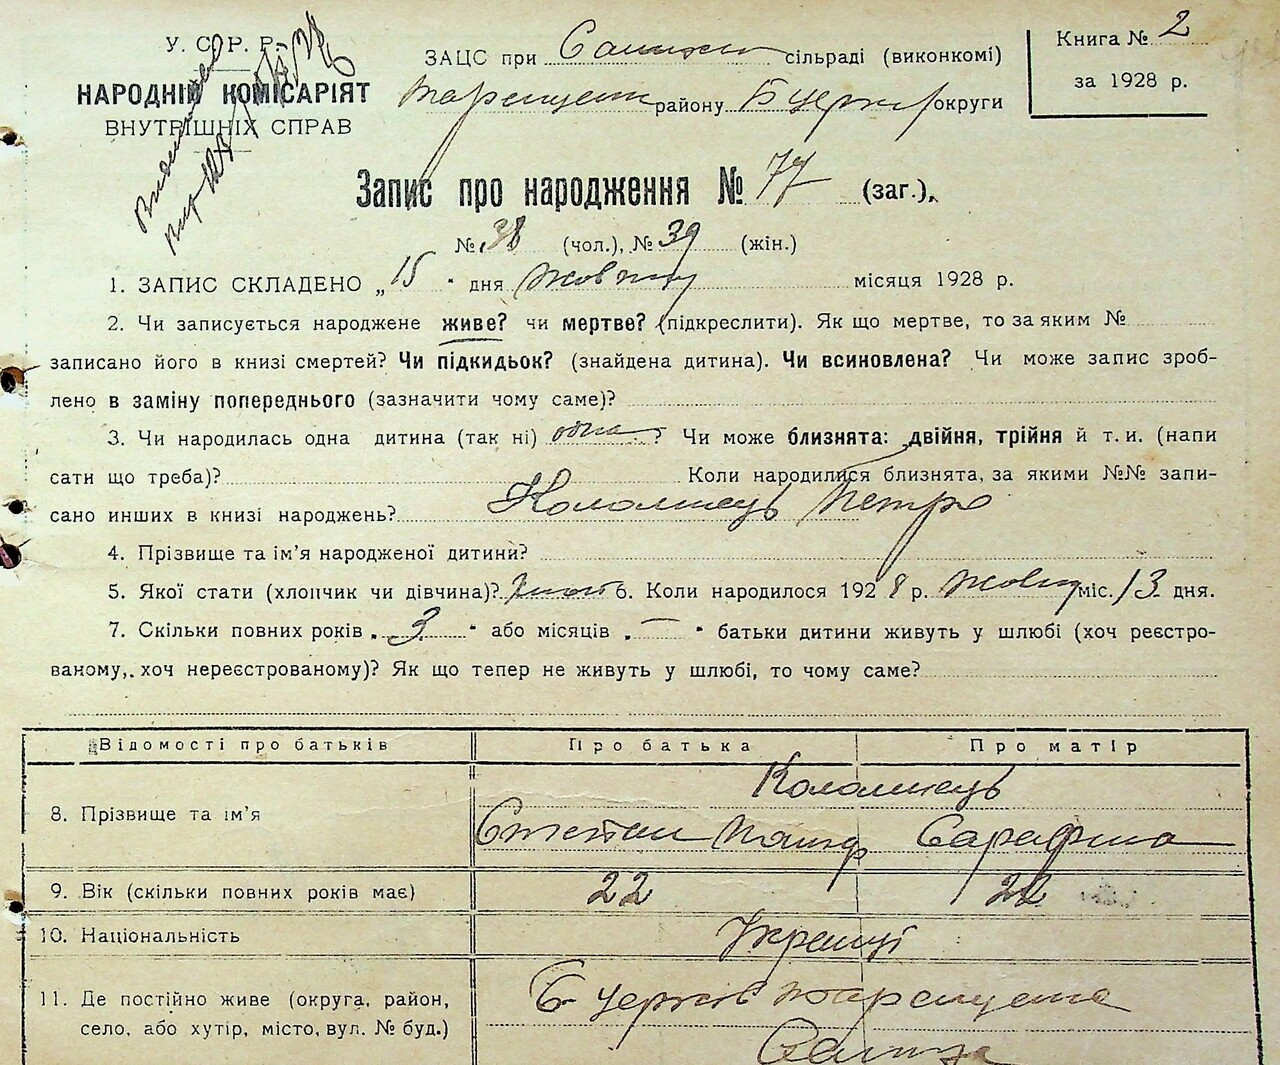 У. С. Р. Р.
НАРОДНІЙ КОМІСАРІЯТ
ВНУТРІШНІХ СПРАВ
ЗАЦС при сільраді (виконкомі)
району Б церк округи
Книга № 2
за 1928 р.
Запис про народження № 77 (заг.),
№ 38 (чол.), № 39 (жін.)
1. ЗАПИС СКЛАДЕНО „15 " дня жовтня місяця 1928 р.
2. Чи записується народжене живе? чи мертве? (підкреслити). Як що мертве, то за яким №
записано його в книзі смертей? Чи підкидьок? (знайдена дитина). Чи всиновлена? Чи може запис зроб-
лено в заміну попереднього (зазначити чому саме)?
3. Чи народилась одна дитина (так ні) одна ? Чи може близнята: двійня, трійня й т. и. (напи
сати що треба)? Коли народилися близнята, за якими №№ запи-
сано инших в книзі народжень?
Коломієць Петро
4. Прізвище та ім'я народженої дитини?
5. Якої стати (хлопчик чи дівчина)? 6. Коли народилося 1928 р. жовтн міс. 13 дня.
7. Скільки повних років „ 3 " або місяців „ — " батьки дитини живуть у шлюбі (хоч реєстро-
ваному, хоч нереєстрованому)? Як що тепер не живуть у шлюбі, то чому саме?
Відомості про батьків Про батька Про матір
Коломієць
8. Прізвище та ім'я Степан Сарафина
9. Вік (скільки повних років має) 22 22
10. Національність Українці
11. Де постійно живе (округа, район, Б церків
село, або хутір, місто, вул. № буд.)